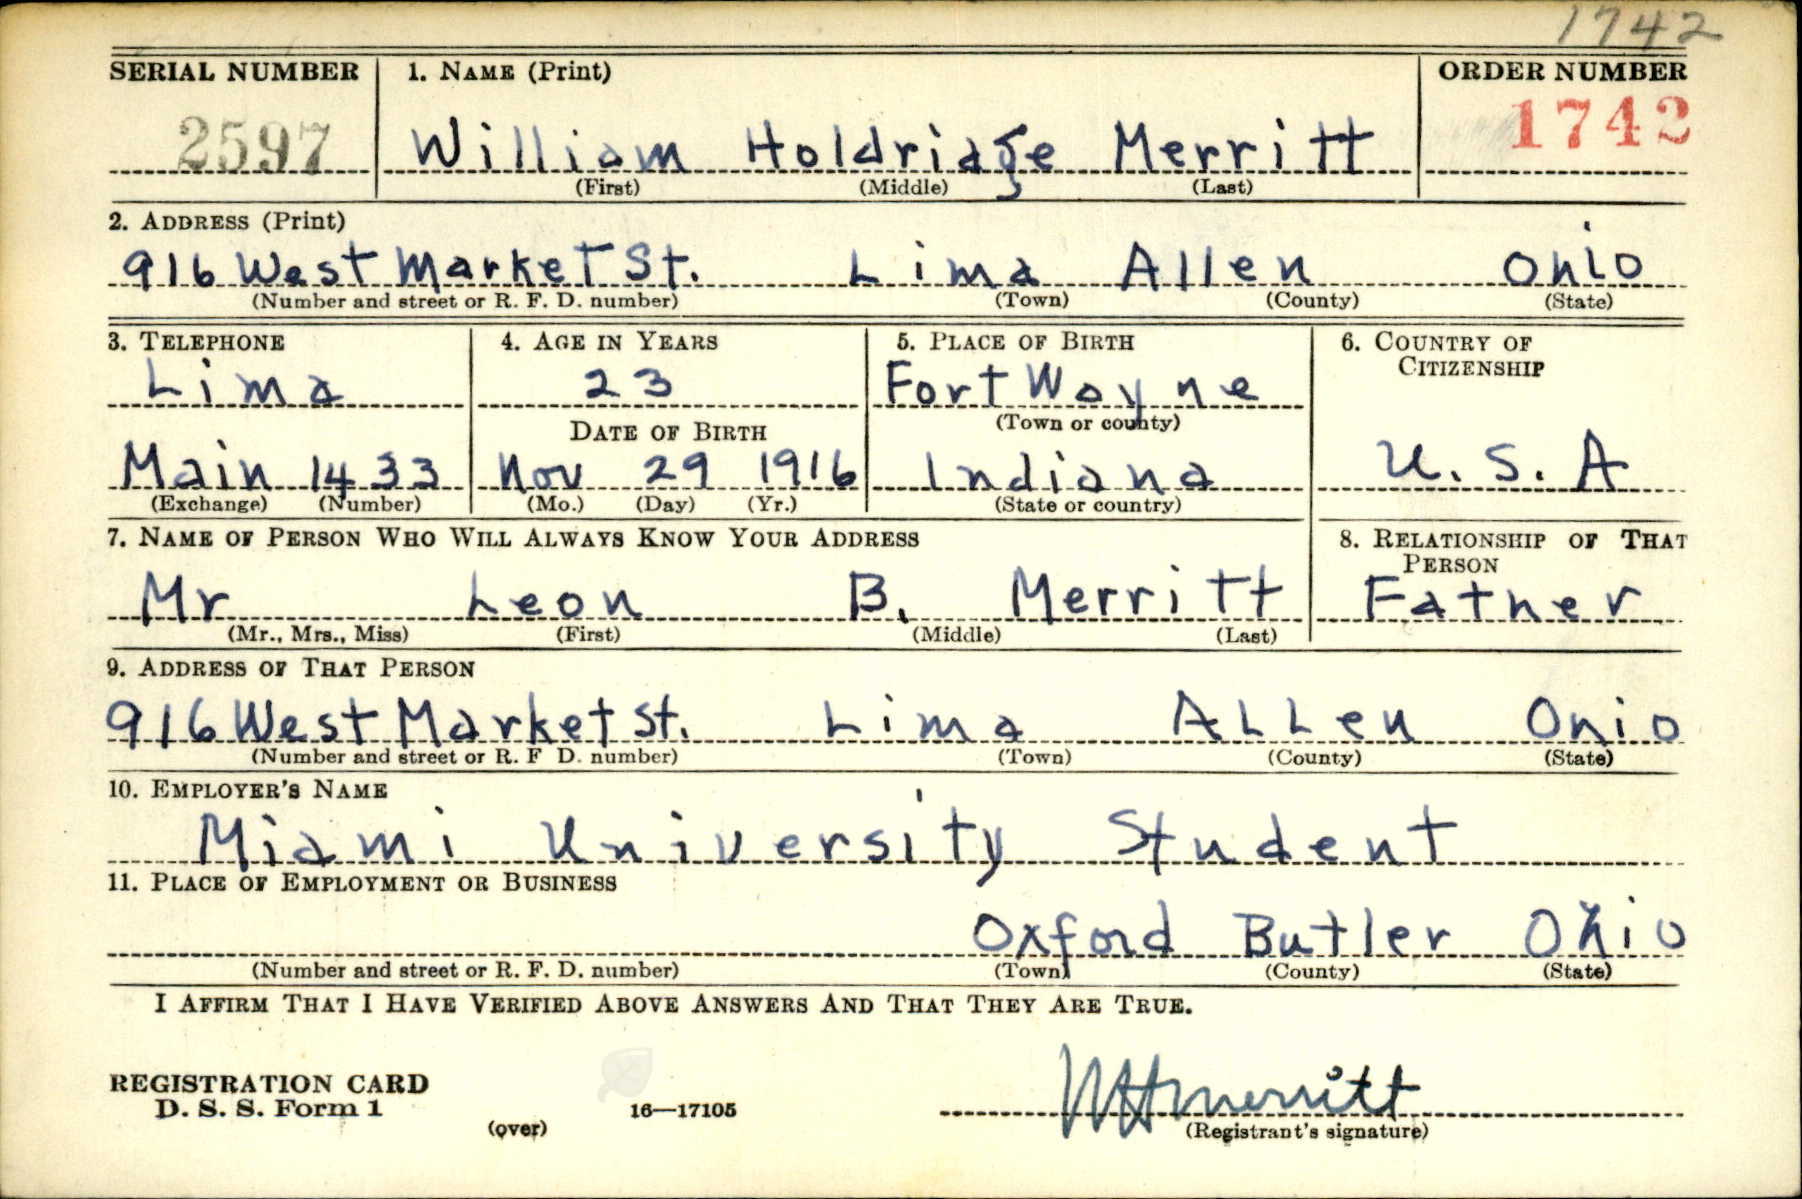 1742
SERIAL NUMBER 1. NAME (Print) ORDER NUMBER
2597 William Holdridge Merritt 1742
(First) (Middle) (Last)
2. ADDRESS (Print)
916 West Market St. Lima Allen Ohio
(Number and street or R. F. D. number) (Town) (County) (State)
3. TELEPHONE 4. AGE IN YEARS 5. PLACE OF BIRTH 6. COUNTRY OF CITIZENSHIP
Lima 23 Fort Wayne
DATE OF BIRTH (Town or county)
Main 1433 Nov 29 1916 Indiana U.S.A
(Exchange) (Number) (Mo.) (Day) (Yr.) (State or country)
7. NAME OF PERSON WHO WILL ALWAYS KNOW YOUR ADDRESS 8. RELATIONSHIP OF THAT PERSON
Mr Leon B. Merritt Father
(Mr., Mrs., Miss) (First) (Middle) (Last)
9. ADDRESS OF THAT PERSON
916 West Market St. Lima ALLen Ohio
(Number and street or R. F. D. number) (Town) (County) (State)
10. EMPLOYER'S NAME
Miami University Student
11. PLACE OF EMPLOYMENT OR BUSINESS
Oxford Butler Ohio
(Number and street or R. F. D. number) (Town) (County) (State)
I AFFIRM THAT I HAVE VERIFIED ABOVE ANSWERS AND THAT THEY ARE TRUE.
REGISTRATION CARD
D. S. S. Form 1 16—17105 WHMerritt
(over) (Registrant's signature)